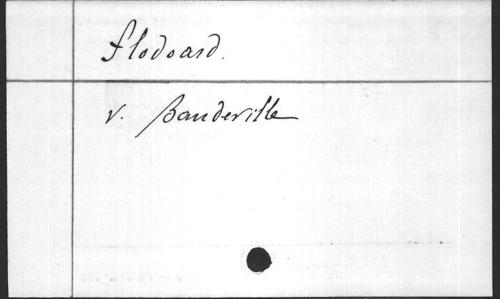 Flodoard.
v. Bandeville